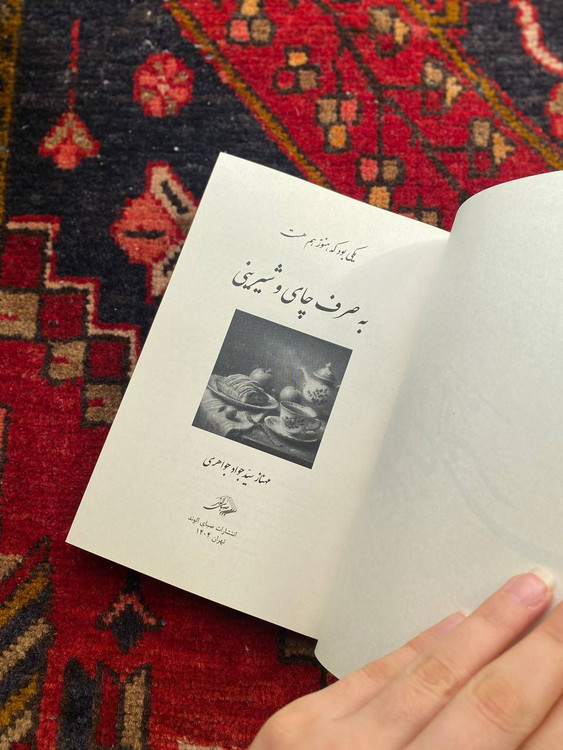 یکی بود که هنوز هم هست
به صرف چای و شیرینی
مهناز سیدجواد جواهری
انتشارات صبای الوند
تهران ۱۴۰۴